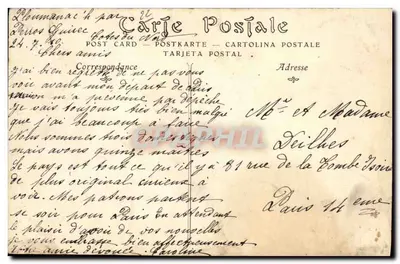 Ploumanac'h par
Perros Guirec
Cotes du Nord
24-7-
Carte Postale
POST CARD — POSTKARTE — CARTOLINA POSTALE
TARJETA POSTAL
Correspondance
Adresse
Chers amis
J'ai bien regretté de ne pas vous
voir avant mon départ de
m'a présenté
Je vais toujours très bien malgré
que j'ai beaucoup à faire
Nous sommes trois domestiques
mais avons quinze maîtres
Le pays est tout ce qu'il y a
de plus original curieux à
voir. Mes patrons partent
ce soir pour Paris En attendant
le plaisir d'avoir de vos nouvelles
je vous embrasse bien affectueusement
Votre amie dévouée Caroline
Mr et Madame
Deilhes
81 rue de la Tombe Issoire
Paris 14 eme